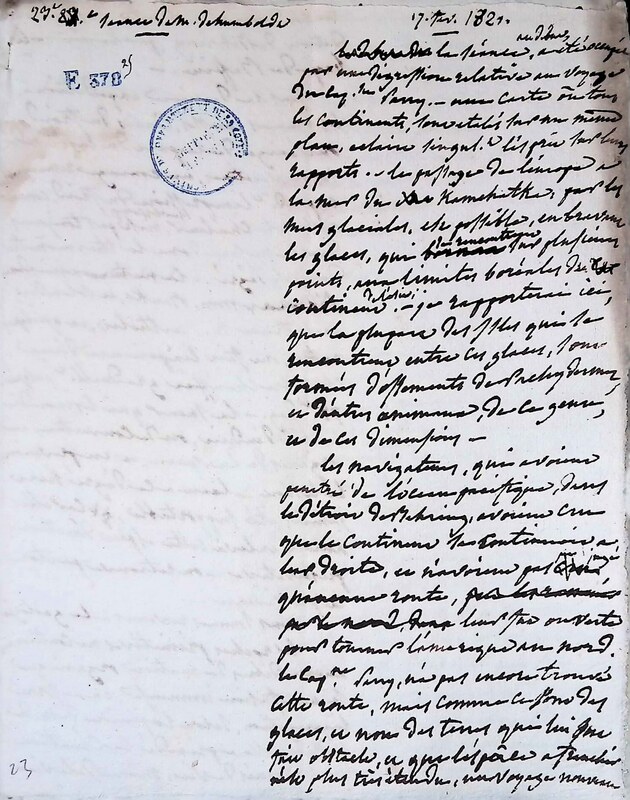 23.e séance de m. de humboldt
17. fev. 1821.
E 378 25
la séance, a été occupée au début
par une digression relative au voyage
du cap.ne Parry. — une carte où tous
les continents, sont etalés sur un même
plan, eclaire singul.t l'esprit sur leurs
rapports. — le passage de l'europe a
la mer du Kamchatka, par les
mers glaciales, est possible, en bravant
les glaces, qui sur plusieurs
points, aux limites boréales de
continent — je rapporterai ici,
que la plupart des isles qui se
rencontrent entre ces glaces, sont
formées d'ossements de Pachydermes,
et d'autres animaux, de ce genre,
et de ces dimensions —
les navigateurs, qui avoient
penetré de l'océan pacifique, dans
le détroit de Behring, avoient cru
que le continent se continuoit a
leur droite, et n'avoient pas
qu'aucune route, leur fut ouverte
pour tourner l'amerique au nord.
le Cap.ne Parry, n'a pas encore trouvé
cette route, mais comme ce sont des
glaces, et non des terres qui lui font
obstacle, et que l'espace a franchir
n'est plus très étendu, un voyage nouveau
23